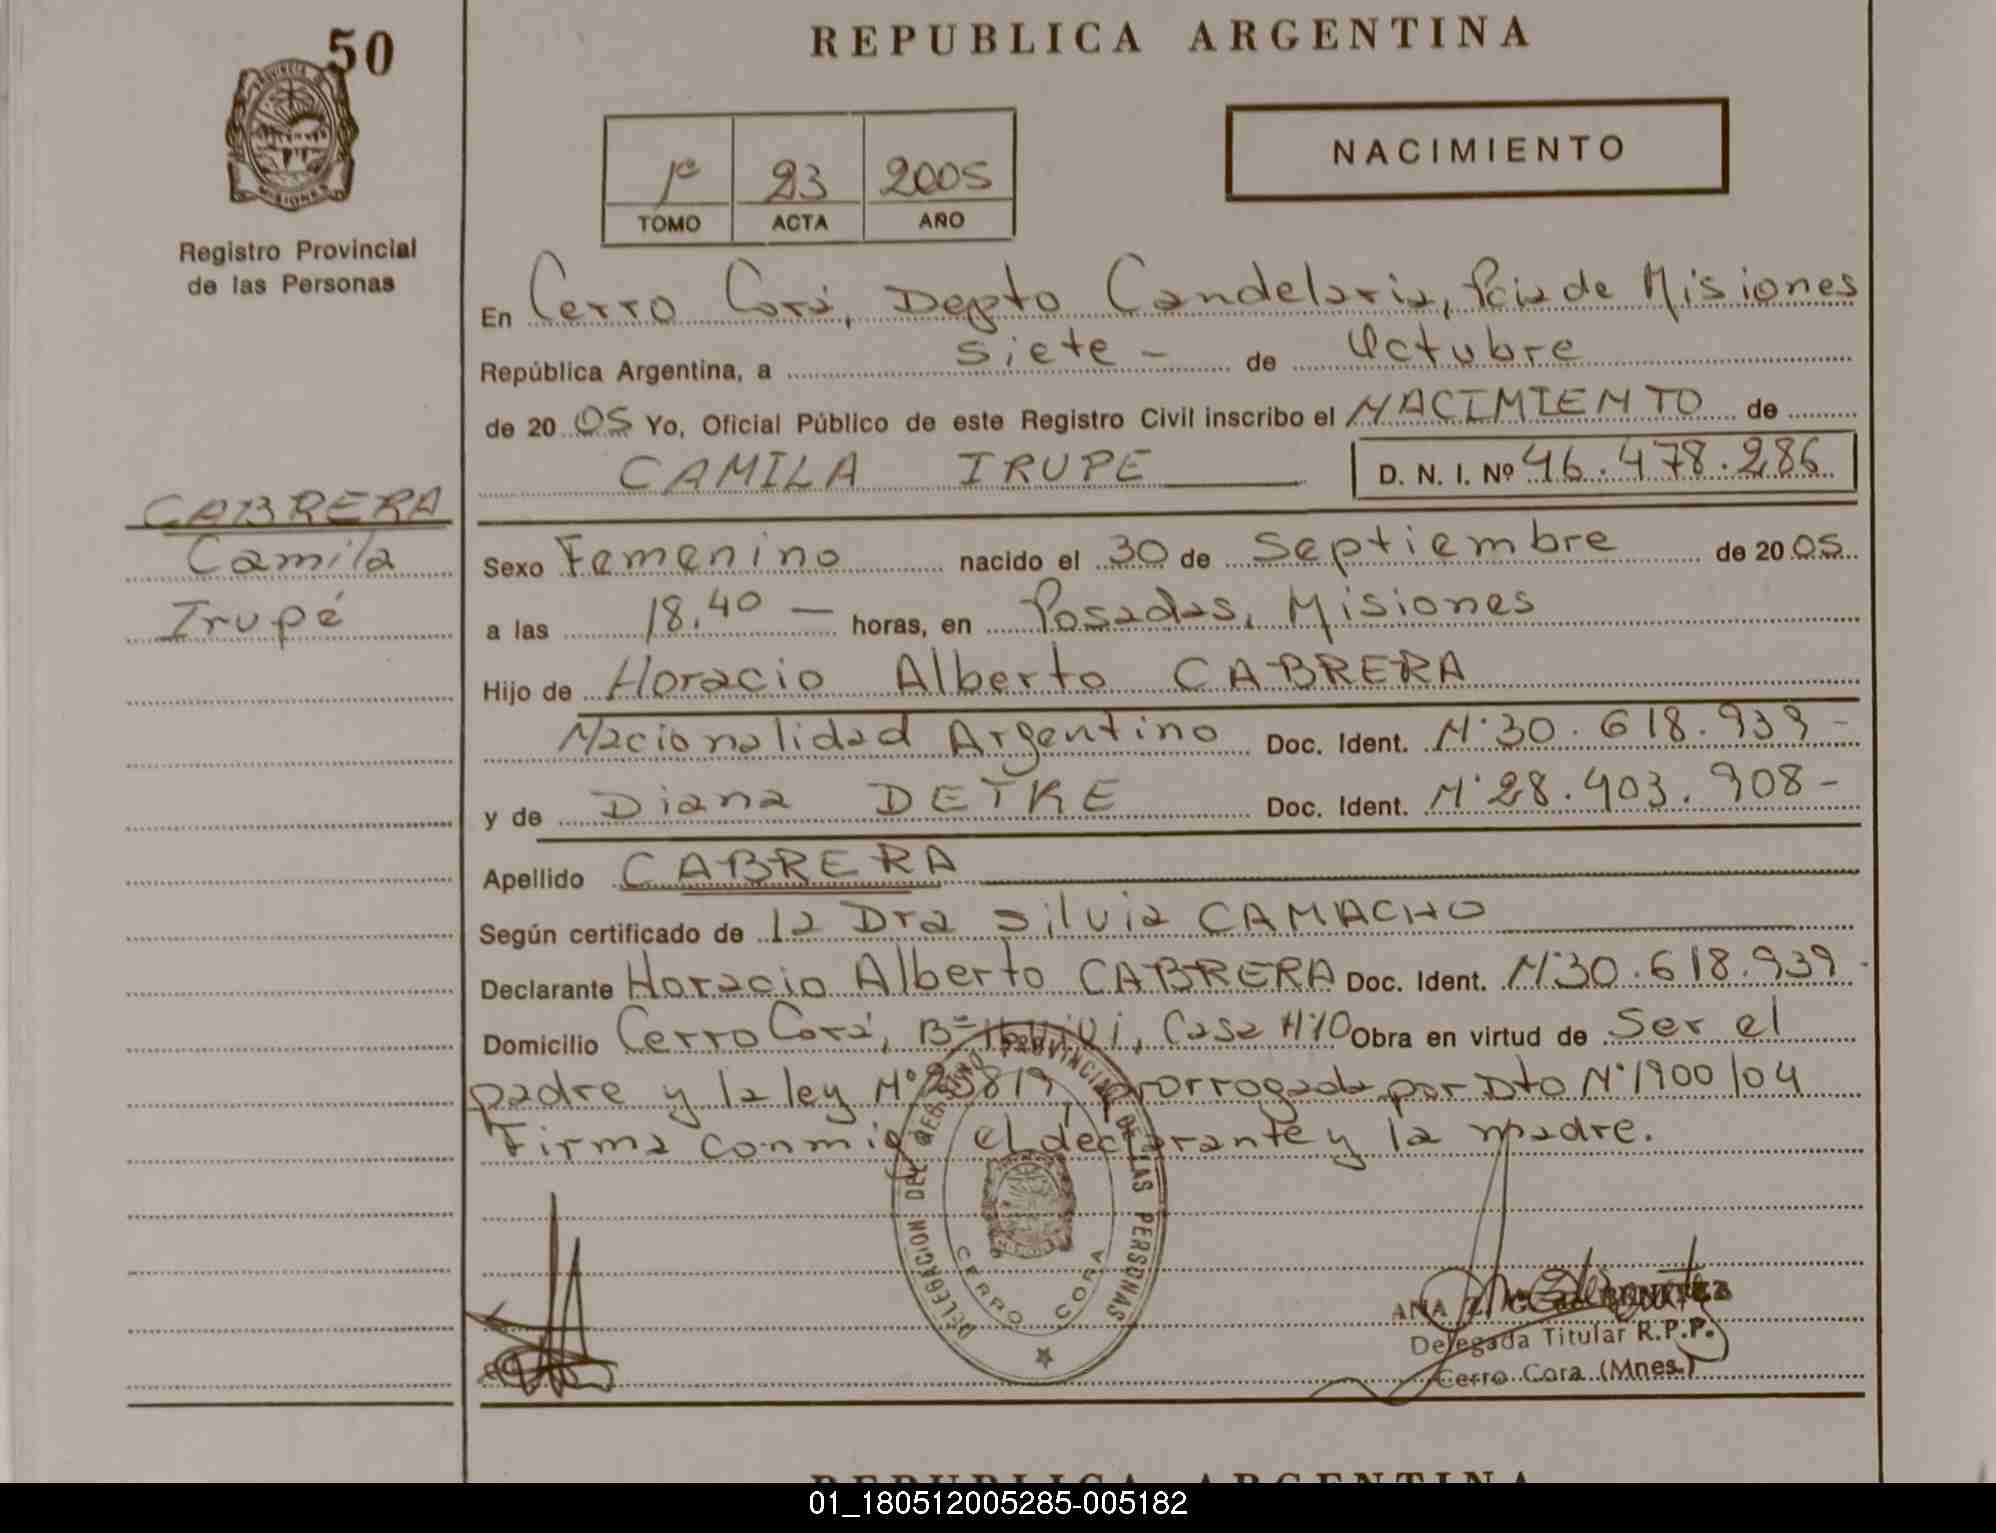 50
REPUBLICA ARGENTINA
PROVINCIA DE
MISIONES
Registro Provincial
de las Personas
1º 23 2005
TOMO ACTA AÑO
NACIMIENTO
En Cerro Corá, Depto Candelaria, Pcia de Misiones
República Argentina, a siete - de Octubre
de 2005 Yo, Oficial Público de este Registro Civil inscribo el NACIMIENTO de
CAMILA IRUPE D. N. I. Nº 46.478.286
CABRERA
Camila
Irupé
Sexo Femenino nacido el 30 de Septiembre de 2005
a las 18.40 — horas, en Posadas, Misiones
Hijo de Horacio Alberto CABRERA
Nacionalidad Argentino Doc. Ident. Nº 30.618.939 -
y de Diana DETKE Doc. Ident. Nº 28.403.908 -
Apellido CABRERA
Según certificado de la Dra Silvia CAMACHO
Declarante Horacio Alberto CABRERA Doc. Ident. Nº 30.618.939 -
Domicilio Cerro Corá, Bº Casa Nº 10 Obra en virtud de Ser el
padre y la ley Nº 25819, prorrogada por Dto Nº 1900/04
Firma conmigo el declarante y la madre.
DELEGACION DEL REGISTRO PROVINCIAL DE LAS PERSONAS
CERRO CORA
ANA BENITEZ
Delegada Titular R.P.P.
Cerro Cora (Mnes.)
REPUBLICA ARGENTINA
01_180512005285-005182